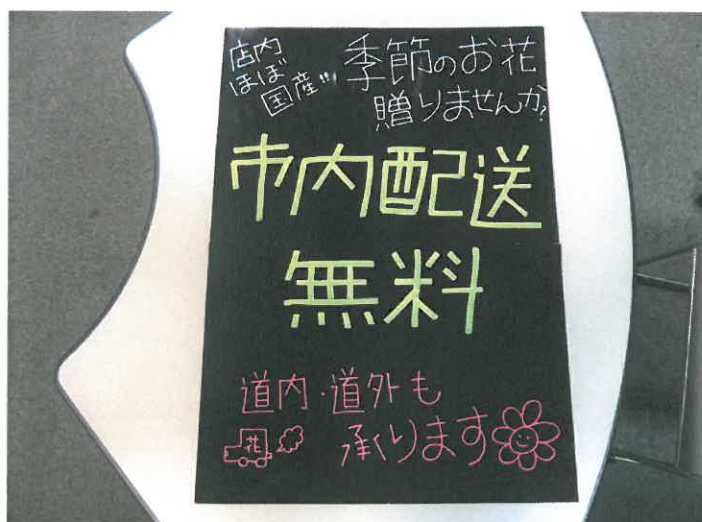 店内
ほぼ
国産!!!
季節のお花
贈りませんか?
市内配送
無料
道内・道外も
承ります
花